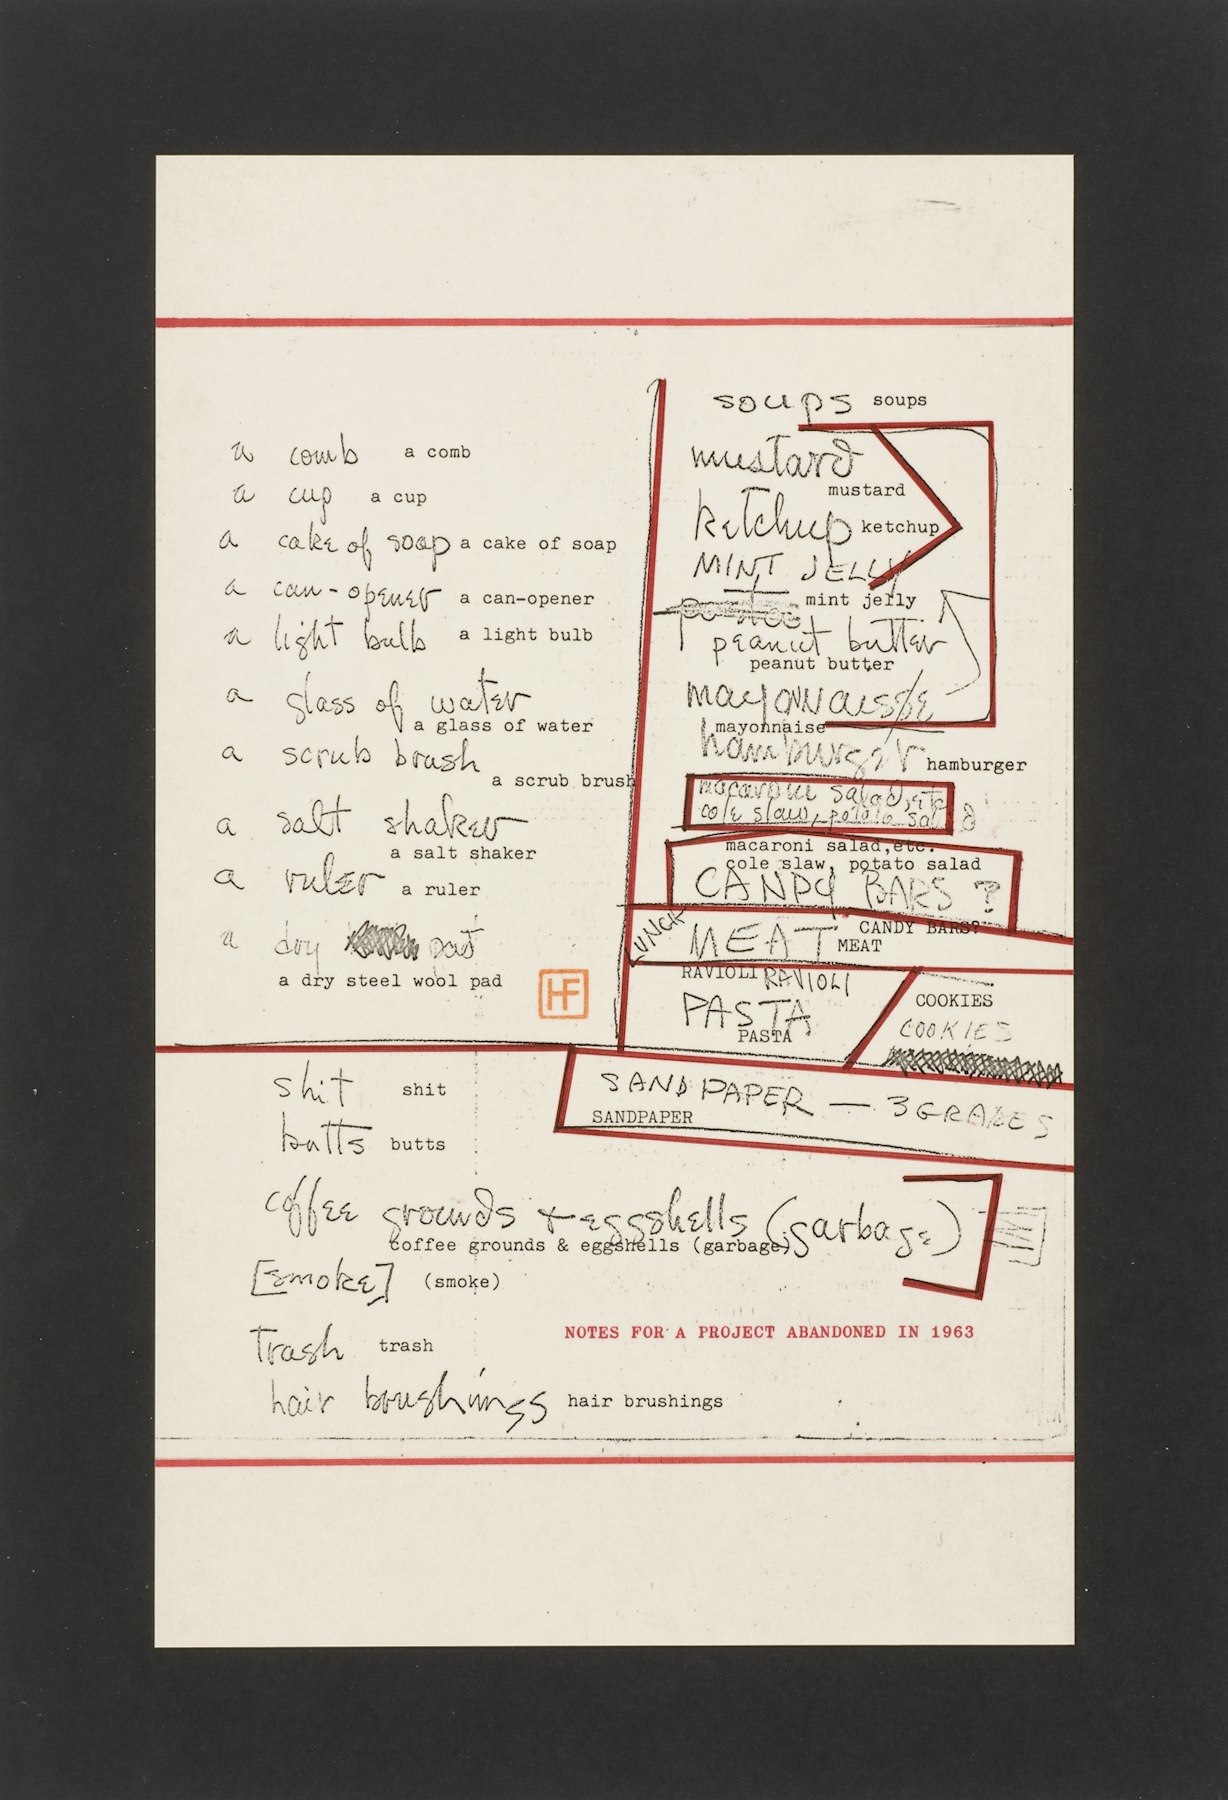 a comb a comb
a cup a cup
a cake of soap a cake of soap
a can-opener a can-opener
a light bulb a light bulb
a glass of water
a glass of water
a scrub brush
a scrub brush
a salt shaker
a salt shaker
a ruler a ruler
a dry pad
a dry steel wool pad
HF
soups soups
mustard
mustard
ketchup ketchup
MINT JELLY
mint jelly
peanut butter
peanut butter
mayonnaise
mayonnaise
hamburger hamburger
macaroni salad, etc
cole slaw, potato salad
macaroni salad,etc.
cole slaw, potato salad
CANDY BARS ?
CANDY BARS?
LUNCH MEAT MEAT
RAVIOLI RAVIOLI
PASTA
PASTA
COOKIES
COOKIES
SANDPAPER — 3 GRADES
SANDPAPER
shit shit
butts butts
coffee grounds + eggshells (garbage)
coffee grounds & eggshells (garbage)
[smoke] (smoke)
NOTES FOR A PROJECT ABANDONED IN 1963
trash trash
hair brushings hair brushings